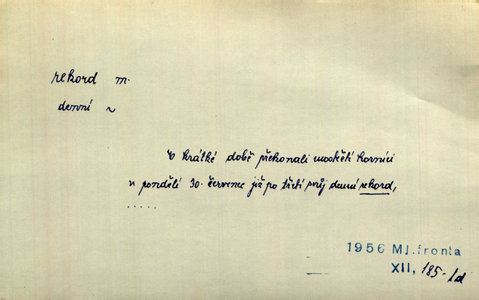 rekord m.
denní ~
V krátké době překonali mostečtí horníci
v pondělí 30. července již po třetí svůj denní rekord,
.....
1956 Ml.fronta
XII, 185-1d